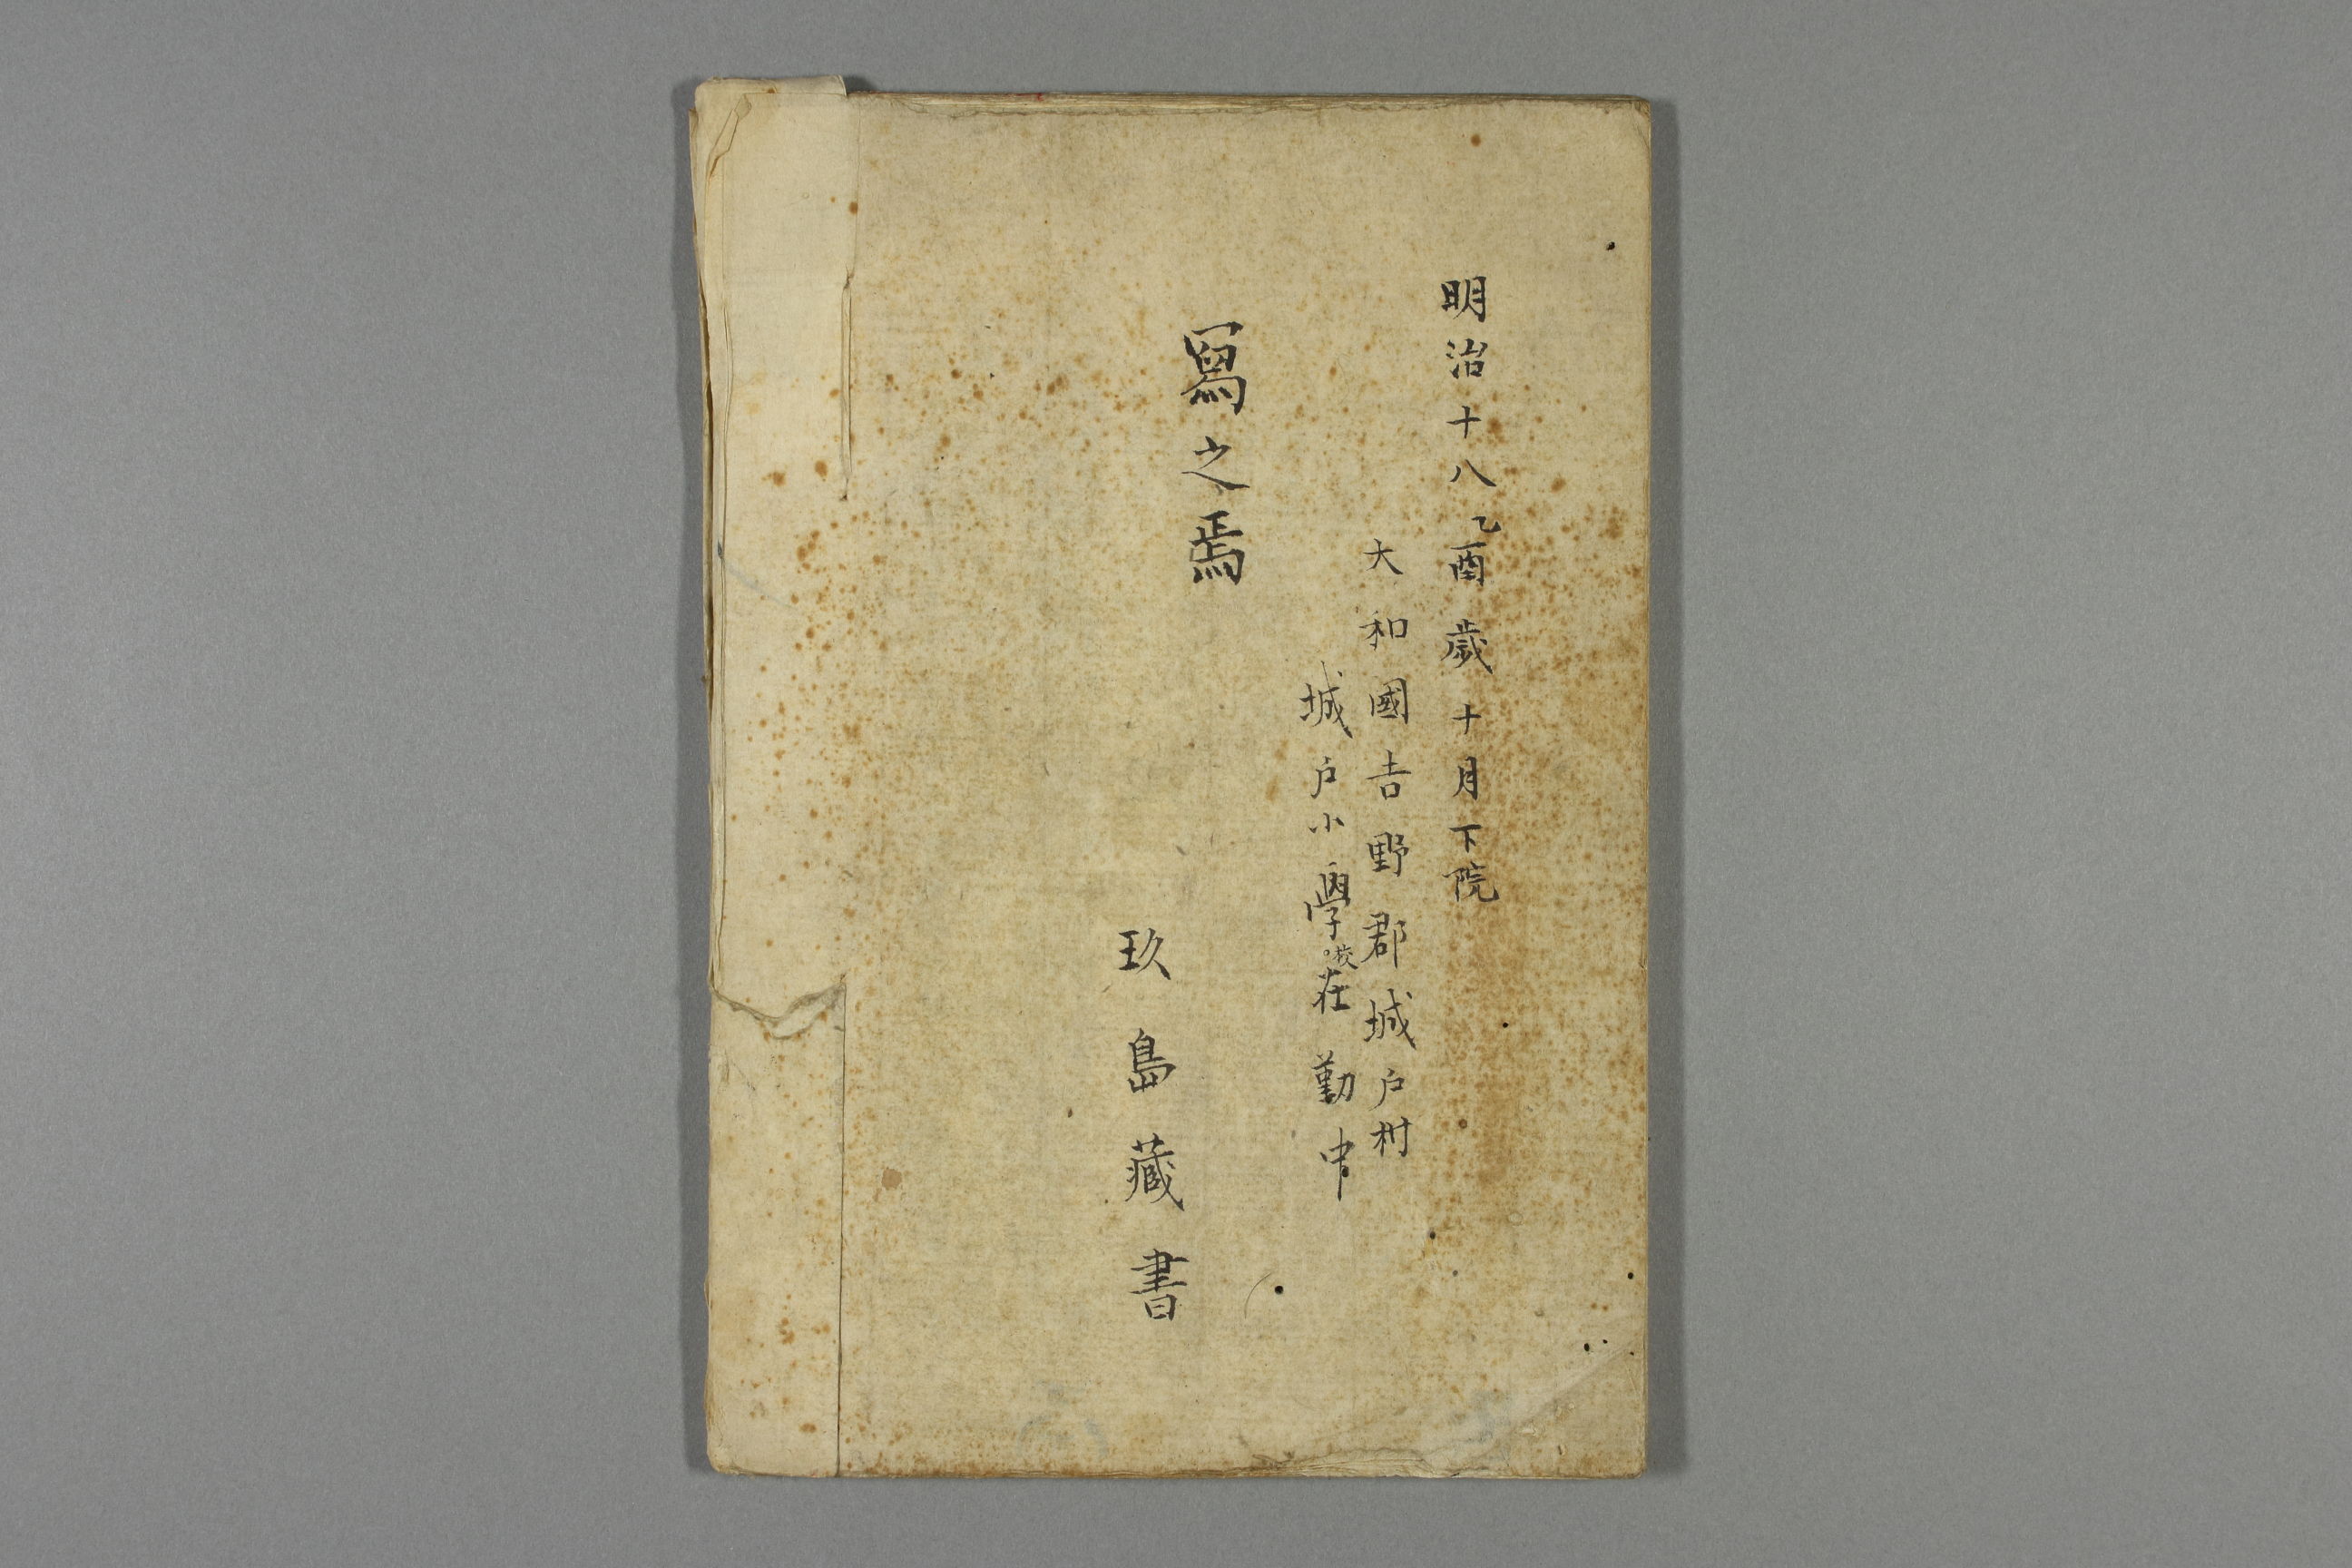 明治十八乙酉歳十月下院
大和國吉野郡城戸村
城戸小學校在勤中
寫之焉
玖島藏書